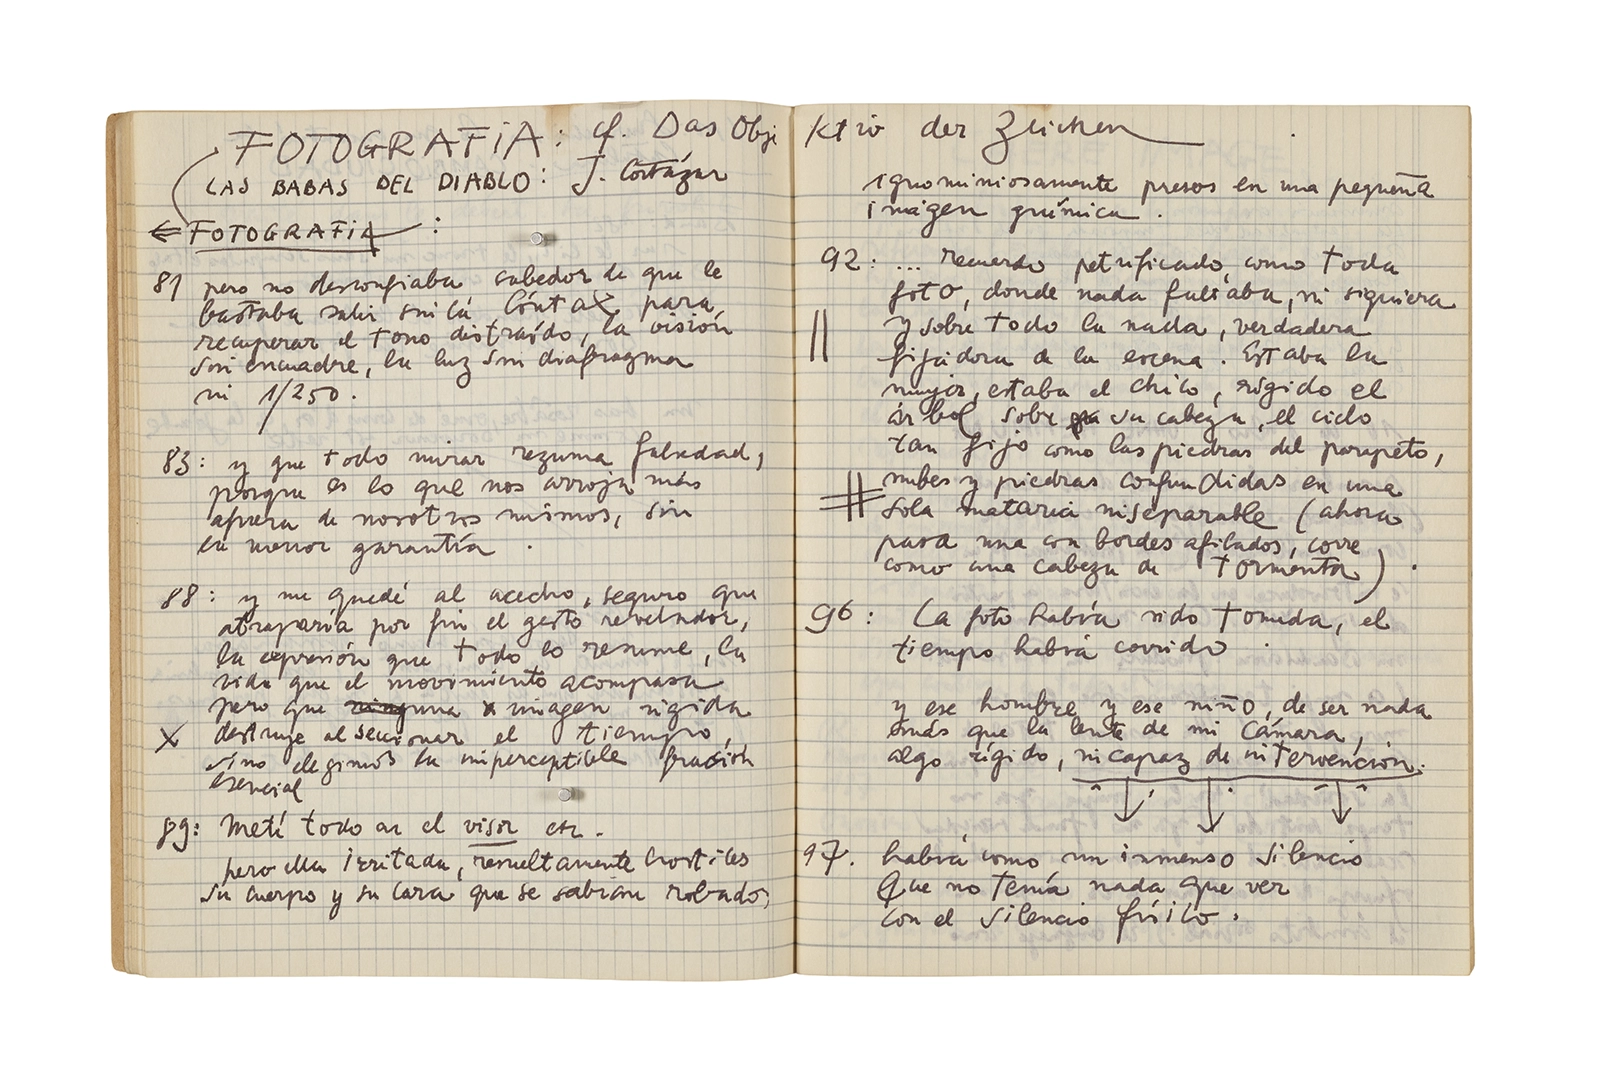 FOTOGRAFIA: cf. Das Objektiv der Zeichen
LAS BABAS DEL DIABLO: J. Cortázar
⇐ FOTOGRAFIA :
81 pero no desconfiaba sabedor de que le
bastaba salir sin la Cóntax para
recuperar el tono distraído, la visión
sin encuadre, la luz sin diafragma
ni 1/250.
83: y que todo mirar rezuma falsedad,
porque es lo que nos arroja más
afuera de nosotros mismos, sin
la menor garantía.
88: y me quedé al acecho, seguro que
atraparía por fin el gesto revelador,
la expresión que todo lo resume, la
vida que el movimiento acompasa
pero que una imagen rígida
X destruye al seccionar el tiempo,
si no elegimos la imperceptible fracción
esencial
89: Metí todo en el visor etc.
pero ella irritada, resueltamente hostiles
su cuerpo y su cara que se sabían robados,
ignominiosamente presos en una pequeña
imágen química.
92: ... recuerdo petrificado, como toda
foto, donde nada faltaba, ni siquiera
y sobre todo la nada, verdadera
fijadora de la escena. Estaba la
mujer, estaba el chico, rígido el
árbol sobre su cabeza, el cielo
tan fijo como las piedras del parapeto,
nubes y piedras confundidas en una
sola materia inseparable (ahora
pasa una con bordes afilados, corre
como una cabeza de tormenta).
96: La foto habrá sido tomada, el
tiempo habrá corrido.
y ese hombre y ese niño, de ser nada
más que la lente de mi Cámara,
algo rígido, incapaz de intervención.
97. habrá como un inmenso silencio
Que no tenía nada que ver
con el silencio físico.